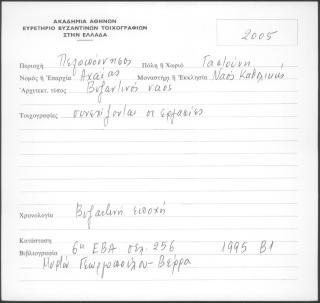 ΑΚΑΔΗΜΙΑ ΑΘΗΝΩΝ
ΕΥΡΕΤΗΡΙΟ ΒΥΖΑΝΤΙΝΩΝ ΤΟΙΧΟΓΡΑΦΙΩΝ
ΣΤΗΝ ΕΛΛΑΔΑ
2005
Περιοχή Πελοπόννησος Πόλη ή Χωριό Γαστούνη
Νομός ή Επαρχία Αχαΐας Μοναστήρι ή Εκκλησία Ναός Καθολικής
Αρχιτεκτ. τύπος Βυζαντινός ναός
Τοιχογραφίες συνεχίζονται οι εργασίες
Χρονολογία Βυζαντινή εποχή
Κατάσταση
Βιβλιογραφία 6η ΕΒΑ σελ. 256 1995 Β1
Μυρτώ Γεωργοπούλου-Βέρρα